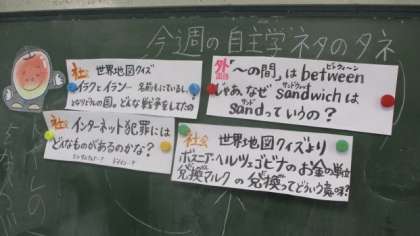 今週の自主学ネタのタネ
社会
世界地図クイズ
イラクとイラン 名前もにているし
となりどうしの国。どんな戦争をしてたの
外国語
「〜の間」は between
ビトゥィーン
じゃあ、なぜ sandwich は
サンドウィッチ
sand っていうの？
サンド
社会
インターネット犯罪には
どんなものがあるのかな？
社会
世界地図クイズより
ボスニア・ヘルツェゴビナのお金の単位
兌換マルク の兌換ってどういう意味？